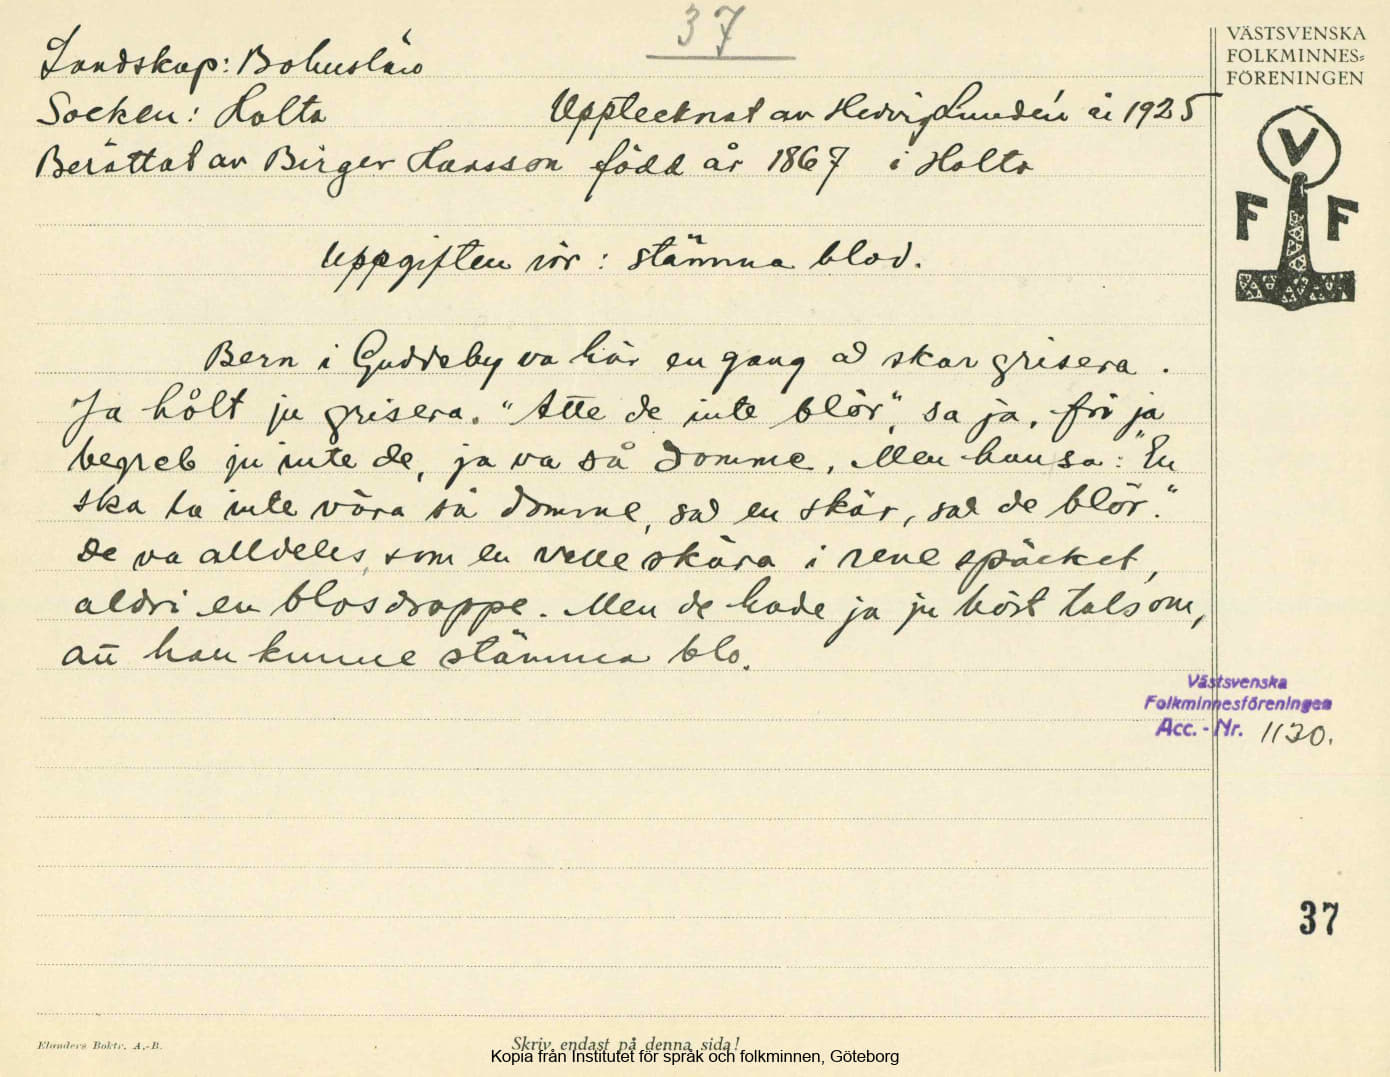 37
Landskap: Bohuslän
VÄSTSVENSKA
FOLKMINNES-
FÖRENINGEN
Socken: Holta
Upptecknat av Hedvig Lundén år 1925
Berättat av Birger Hansson född år 1867 i Holta
V
F F
Uppgiften rör: stämma blod.
Bern i Guddeby va här en gang å skar grisera.
Ja hålt ju grisera. "Atte de inte blör", sa ja, för ja
begreb ju inte de, ja va så domme. Men han sa: "En
ska la inte våra så domme, sad en skär, sad de blör."
De va alldeles, som en velle skära i rene späcket,
aldri en blosdroppe. Men de hade ja ju hört talsom,
att han kunne stämma blo.
Västsvenska
Folkminnesföreningen
Acc.-Nr. 1130.
37
Elanders Boktr. A.-B.
Skriv endast på denna sida!
Kopia från Institutet för språk och folkminnen, Göteborg